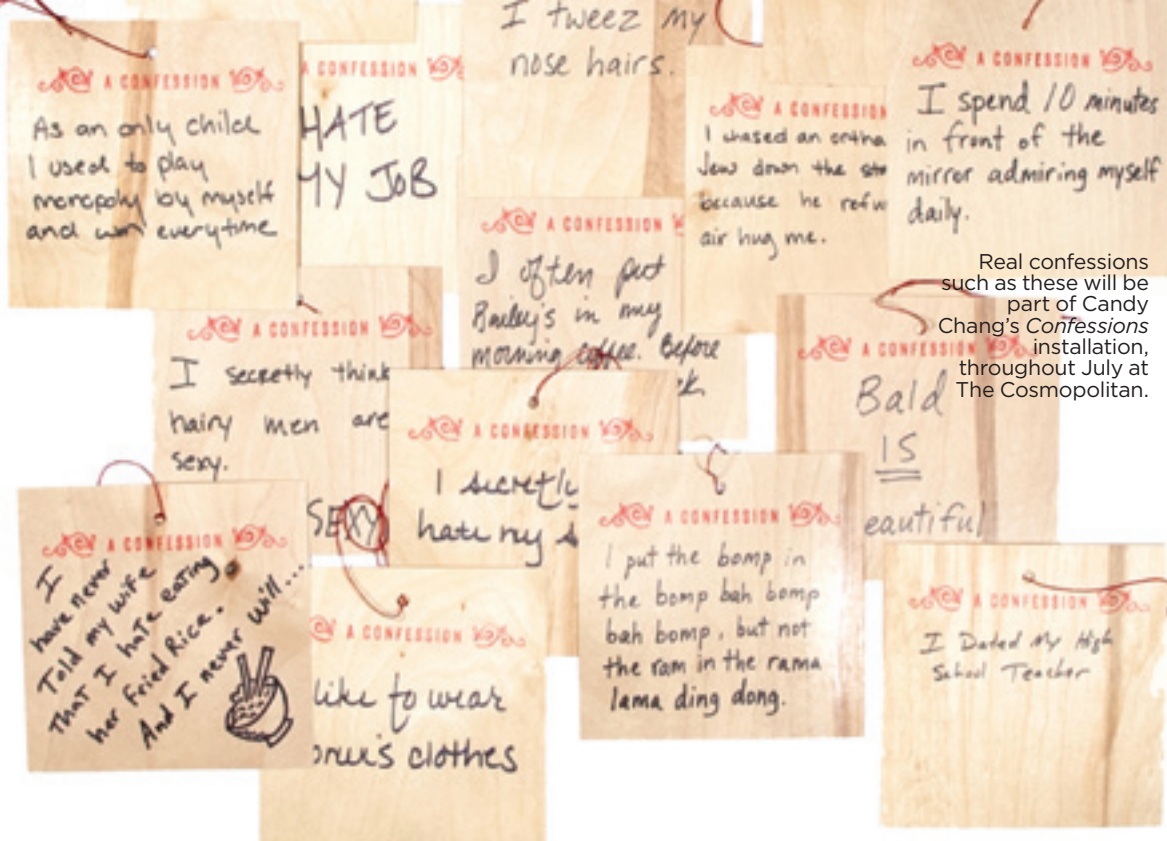 A CONFESSION
As an only child
I used to play
monopoly by myself
and won everytime
A CONFESSION
HATE
MY JOB
I tweez my
nose hairs.
A CONFESSION
I chased an
Jew down the
because he
air hug me.
A CONFESSION
I spend 10 minutes
in front of the
mirror admiring myself
daily.
Real confessions
such as these will be
part of Candy
Chang's Confessions
installation,
throughout July at
The Cosmopolitan.
A CONFESSION
I secretly think
hairy men are
sexy.
SEXY
A CONFESSION
I often put
Bailey's in my
morning coffee. Before
A CONFESSION
I secretly
hate my s
A CONFESSION
Bald
IS
eautiful
A CONFESSION
I
have never
Told my wife
That I hate eating
her Fried Rice.
And I never will...
A CONFESSION
like to wear
clothes
A CONFESSION
I put the bomp in
the bomp bah bomp
bah bomp, but not
the ram in the rama
lama ding dong.
A CONFESSION
I Dated My High
School Teacher